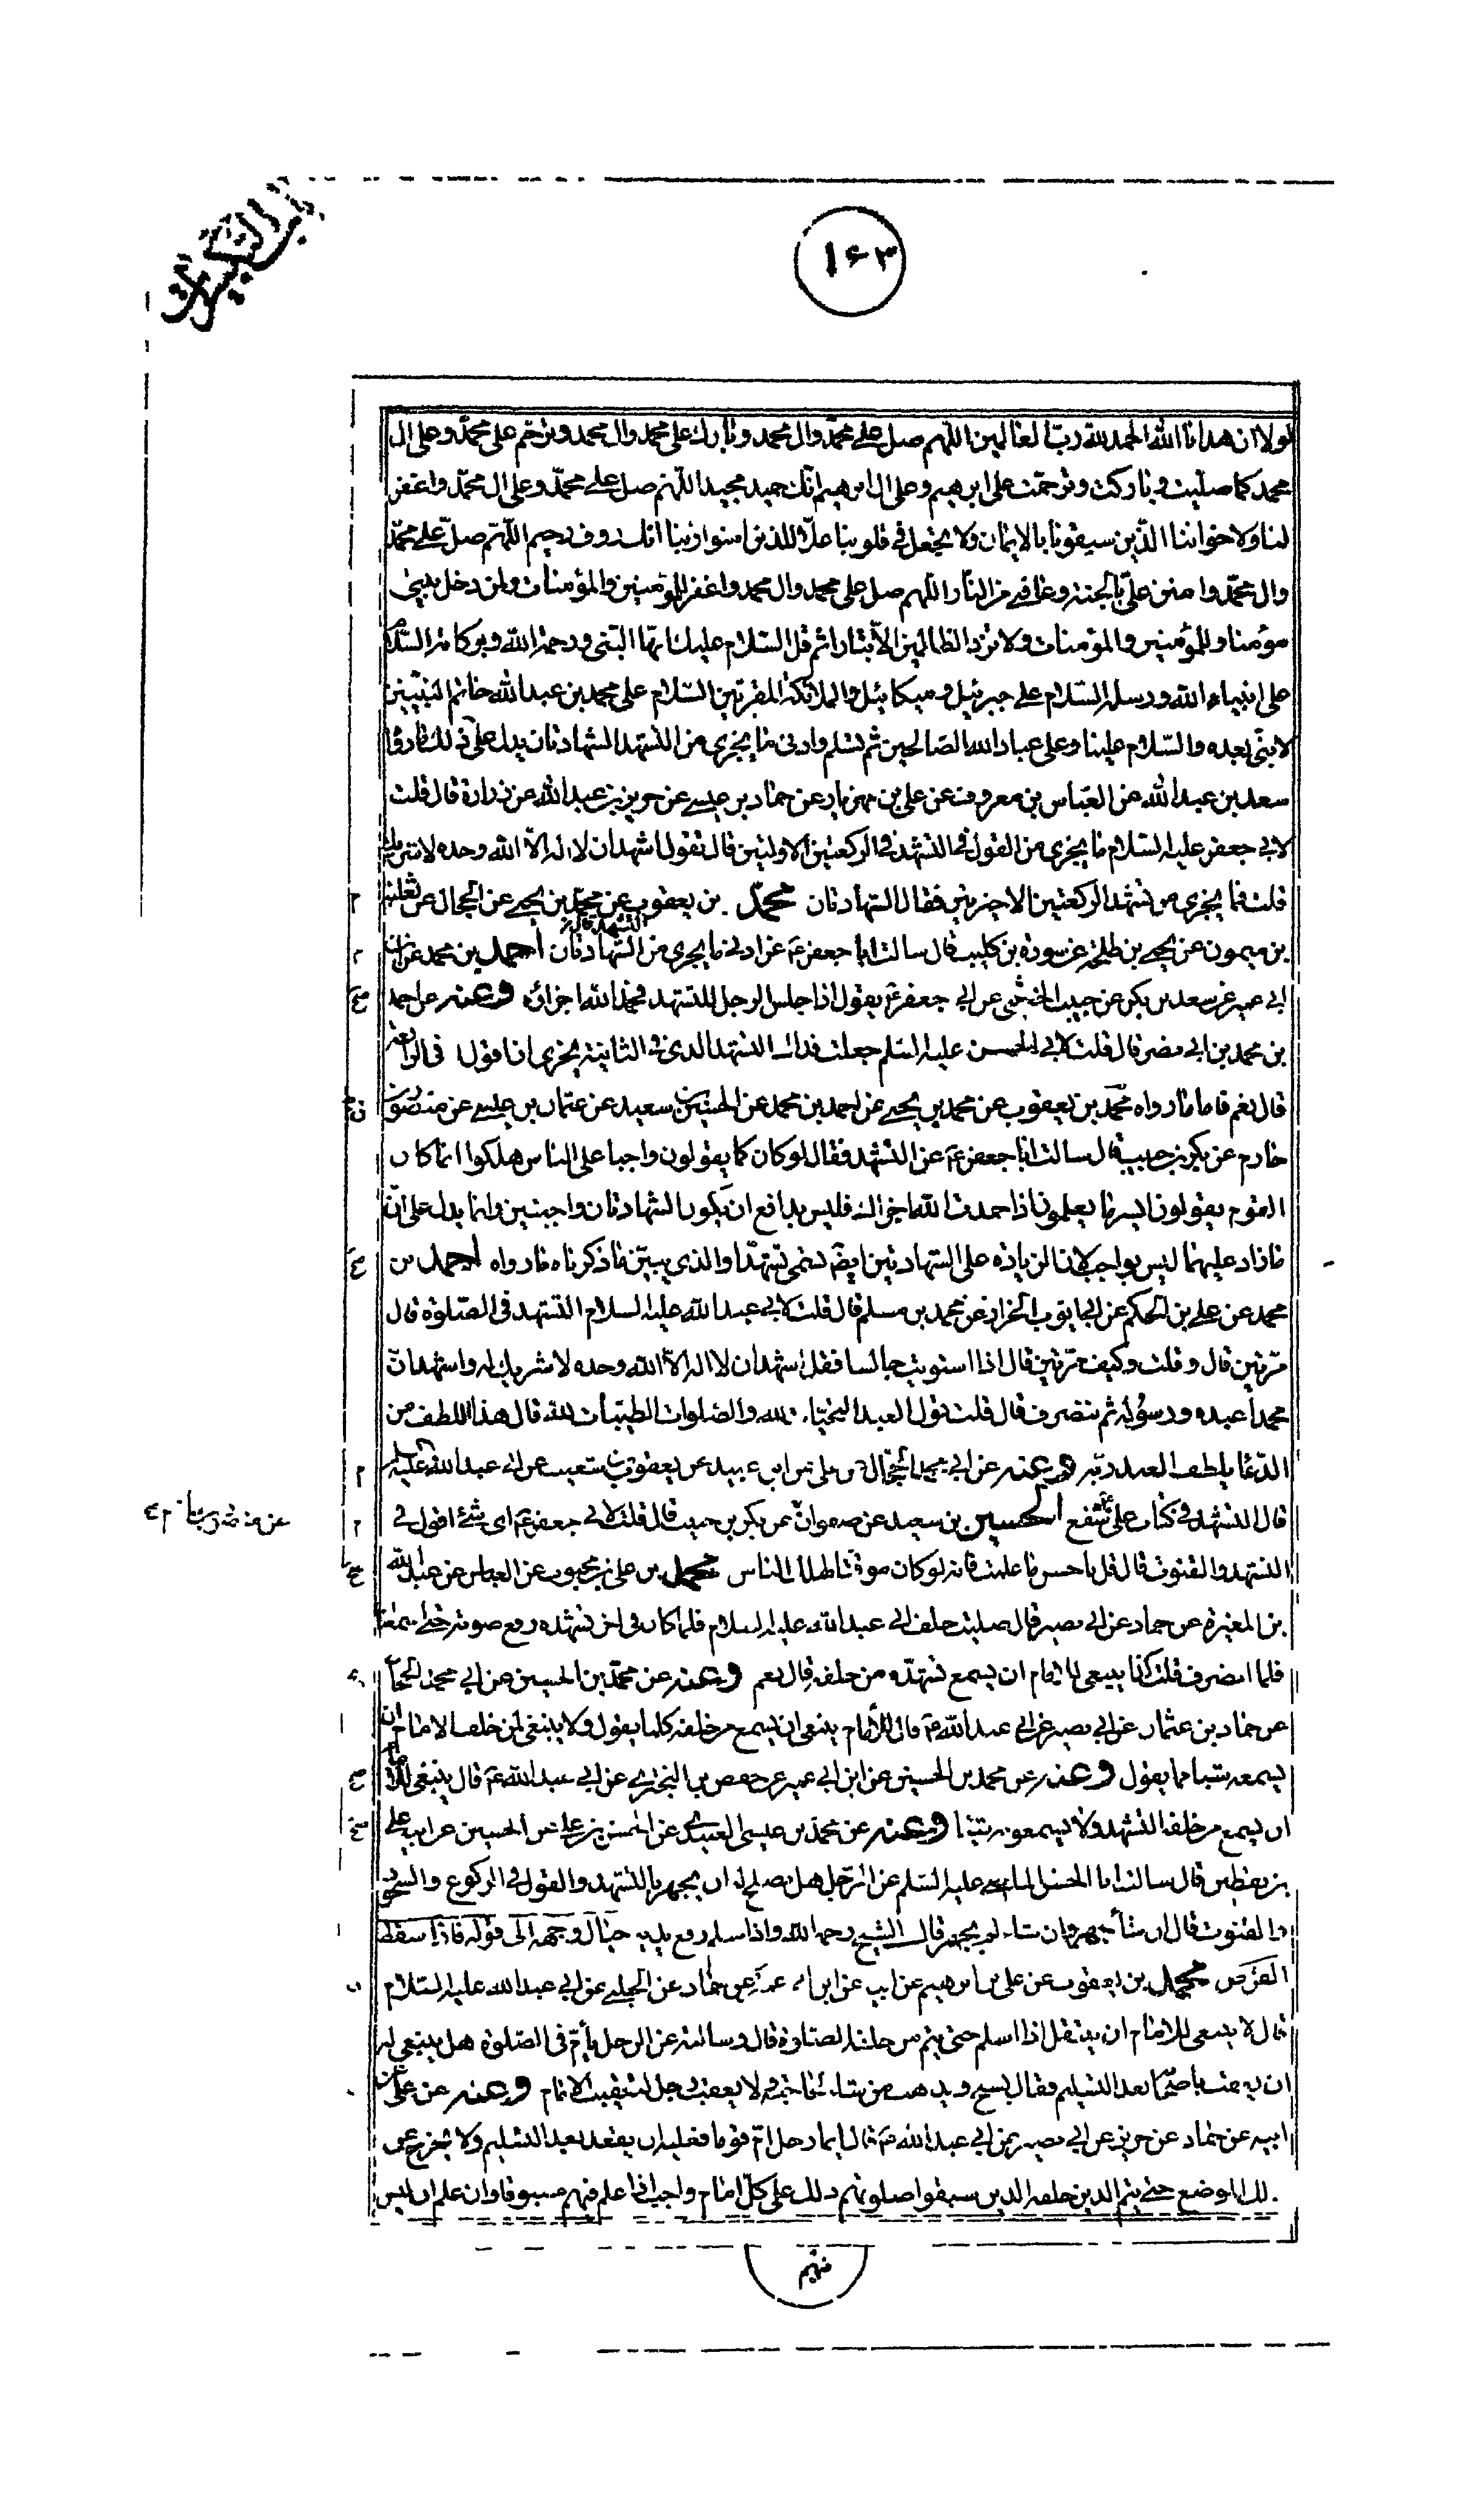 ١٦٣
لولا ان هدانا الله الحمد لله رب العالمين اللهم صل على محمد وال محمد وبارك على محمد وال محمد وترحم على محمد وعلى ال
محمد كما صليت وباركت وترحمت على ابرهيم وعلى ال ابرهيم انك حميد مجيد اللهم صل على محمد وعلى ال محمد واغفر
لنا ولاخواننا الذين سبقونا بالايمان ولا تجعل في قلوبنا غلا للذين امنوا ربنا انك روف رحيم اللهم صل على محمد
وال محمد وامنن علي بالجنة وعافني من النار اللهم صل على محمد وال محمد واغفر للمؤمنين والمؤمنات ولمن دخل بيتي
مؤمنا وللمؤمنين والمؤمنات ولا تزد الظالمين الا تبارا ثم قل السلام عليك ايها النبي ورحمة الله وبركاته السلام
على انبياء الله ورسله السلام على جبرئيل وميكائيل والملائكة المقربين السلام على محمد بن عبد الله خاتم النبيين
لا نبي بعده والسلام علينا وعلى عباد الله الصالحين ثم تسلم وادنى ما يجزي من التشهد الشهادتان يدل على ذلك ما روا
سعد بن عبد الله عن العباس بن معروف عن علي بن مهزيار عن حماد بن عيسى عن حريز بن عبد الله عن زرارة قال قلت
لابي جعفر عليه السلام ما يجزي من القول في التشهد في الركعتين الاولتين قال تقول اشهد ان لا اله الا الله وحده لا شريك له
قلت فما يجزي من تشهد الركعتين الاخيرتين فقال الشهادتان محمد بن يعقوب عن محمد بن يحيى عن الحجال عن ثعلبة
بن ميمون عن يحيى بن طلحة عن سورة بن كليب قال سالت ابا جعفر ع عن ادنى ما يجزي من التشهد قال الشهادتان احمد بن محمد عن ابن
ابي عمير عن سعد بن بكر عن حبيب الخثعمي عن ابي جعفر ع يقول اذا جلس الرجل للتشهد فحمد الله اجزاه وعنه عن احمد
بن محمد بن ابي نصر قال قلت لابي الحسن عليه السلم جعلت فداك التشهد الذي في الثانية يجزي ان اقول في الرابعة
قال نعم فاما ما رواه محمد بن يعقوب عن محمد بن يحيى عن احمد بن محمد عن الحسين بن سعيد عن عثمان بن عيسى عن منصور بن
حازم عن بكر بن حبيب قال سالت ابا جعفر ع عن التشهد فقال لو كان كما يقولون واجبا على الناس هلكوا انما كان
القوم يقولون ايسر ما يعلمون اذا حمدت الله اجزاك فليس بدافع ان يكون الشهادتان واجبتين وانما يدل على ان
ما زاد عليهما ليس بواجب لان الزيادة على الشهادتين ايضا تسمى تشهدا والذي يبين ما ذكرناه ما رواه احمد بن
محمد عن علي بن الحكم عن ابي ايوب الخزاز عن محمد بن مسلم قال قلت لابي عبد الله عليه السلام التشهد في الصلوة قال
مرتين قال وقلت وكيف مرتين قال اذا استويت جالسا فقل اشهد ان لا اله الا الله وحده لا شريك له واشهد ان
محمدا عبده ورسوله ثم تنصرف قال قلت قول العبد التحيات لله والصلوات الطيبات لله قال هذا اللطف من
الدعا يلطف العبد ربه وعنه عن ابي محمد الحجال عن علي بن عبيد عن يعقوب بن شعيب عن ابي عبد الله عليه السلم
قال التشهد في كتاب علي شفع الحسين بن سعيد عن صفوان عن بكر بن حبيب قال قلت لابي جعفر ع اى شئ اقول في
التشهد والقنوت قال قل باحسن ما علمت فانه لو كان موقتا لهلك الناس محمد بن علي بن محبوب عن العباس عن عبد الله
بن المغيرة عن حماد عن ابي بصير قال صليت خلف ابي عبد الله عليه السلام فلما كان في اخر تشهده رفع صوته حتى اسمعنا
فلما انصرف قلت كذا ينبغي للامام ان يسمع تشهده من خلفه قال نعم وعنه عن محمد بن الحسين عن ابي محمد الحجال
عن حماد بن عثمان عن ابي بصير عن ابي عبد الله ع قال للامام ينبغي ان يسمع من خلفه كلما يقول ولا ينبغي لمن خلف الامام ان
يسمعه شيئا مما يقول وعنه عن محمد بن الحسين عن ابن ابي عمير عن حفص بن البختري عن ابي عبد الله ع قال ينبغي للامام
ان يسمع من خلفه التشهد ولا يسمعونه شيئا وعنه عن محمد بن عيسى العبيدي عن الحسن بن علي عن الحسين عن ابيه علي
بن يقطين قال سالت ابا الحسن الماضي عليه السلم عن الرجل هل يصلح له ان يجهر بالتشهد والقول في الركوع والسجود
والقنوت قال ان شاء جهر وان شاء لم يجهر قال الشيخ رحمه الله واذا سلم رفع يديه حيال وجهه الى قوله فاذا سقط
القرص محمد بن يعقوب عن علي بن ابرهيم عن ابيه عن ابن ابي عمير عن حماد عن الحلبي عن ابي عبد الله عليه السلام
قال لا ينبغي للامام ان ينتقل اذا سلم حتى يتم من خلفه الصلوة قال وسالته عن الرجل يؤم في الصلوة هل ينبغي له
ان يعقب باصحابه بعد التسليم فقال يسبح ويذهب من شاء لحاجته ولا يعقب رجل لتعقيب الامام وعنه عن علي عن
ابيه عن حماد عن حريز عن ابي بصير عن ابي عبد الله ع قال ايما رجل ام قوما فعليه ان يقعد بعد التسليم ولا يخرج عن
ذلك الموضع حتى يتم الذين خلفه الذين سبقوا صلوتهم ذلك على كل امام واجب اذا علم فيهم مسبوقا وان علم ان ليس
فيهم